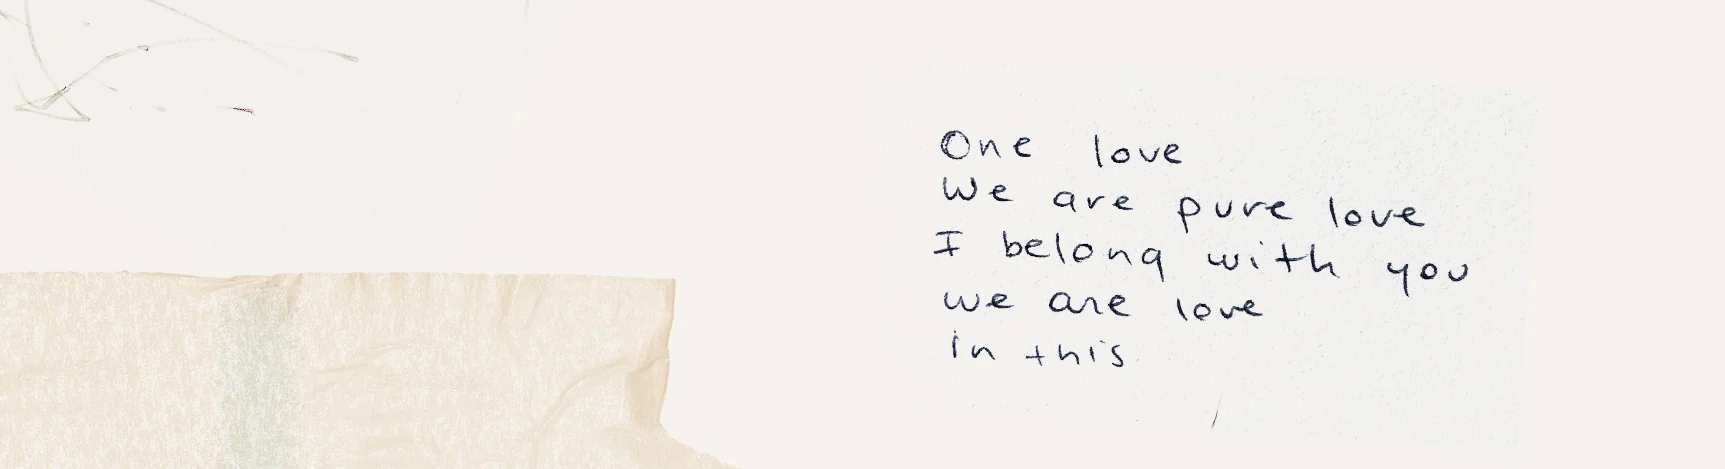 One love
We are pure love
I belong with you
we are love
in this